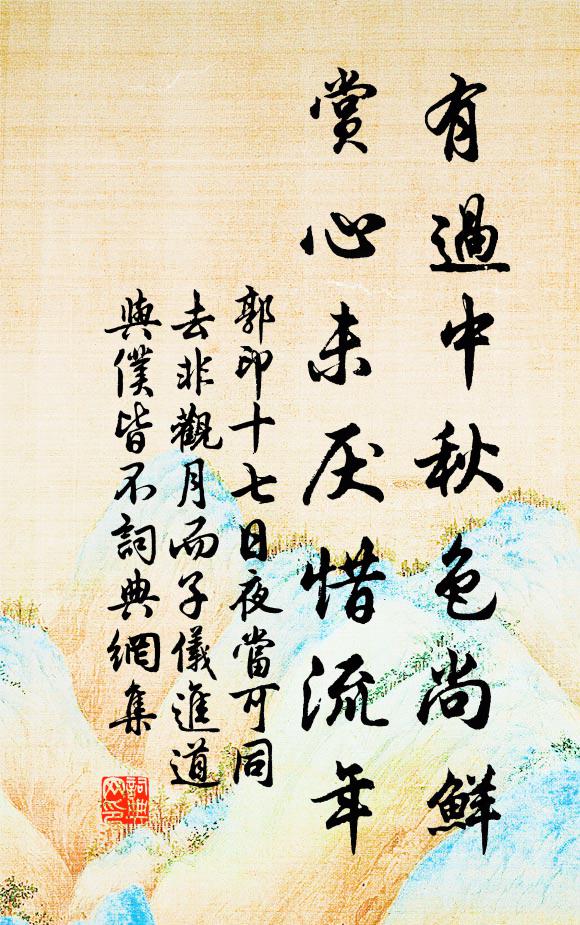 有過中秋色尚鮮
賞心未厌惜流年
郭印十七日夜當可同
去非觀月而子儀進道
與僕皆不詞典網集
詞典